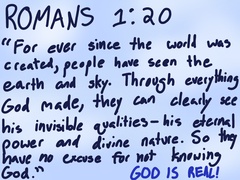 ROMANS 1:20
"For ever since the world was
created, people have seen the
earth and sky. Through everything
God made, they can clearly see
his invisible qualities—his eternal
power and divine nature. So they
have no excuse for not knowing
God." GOD IS REAL!